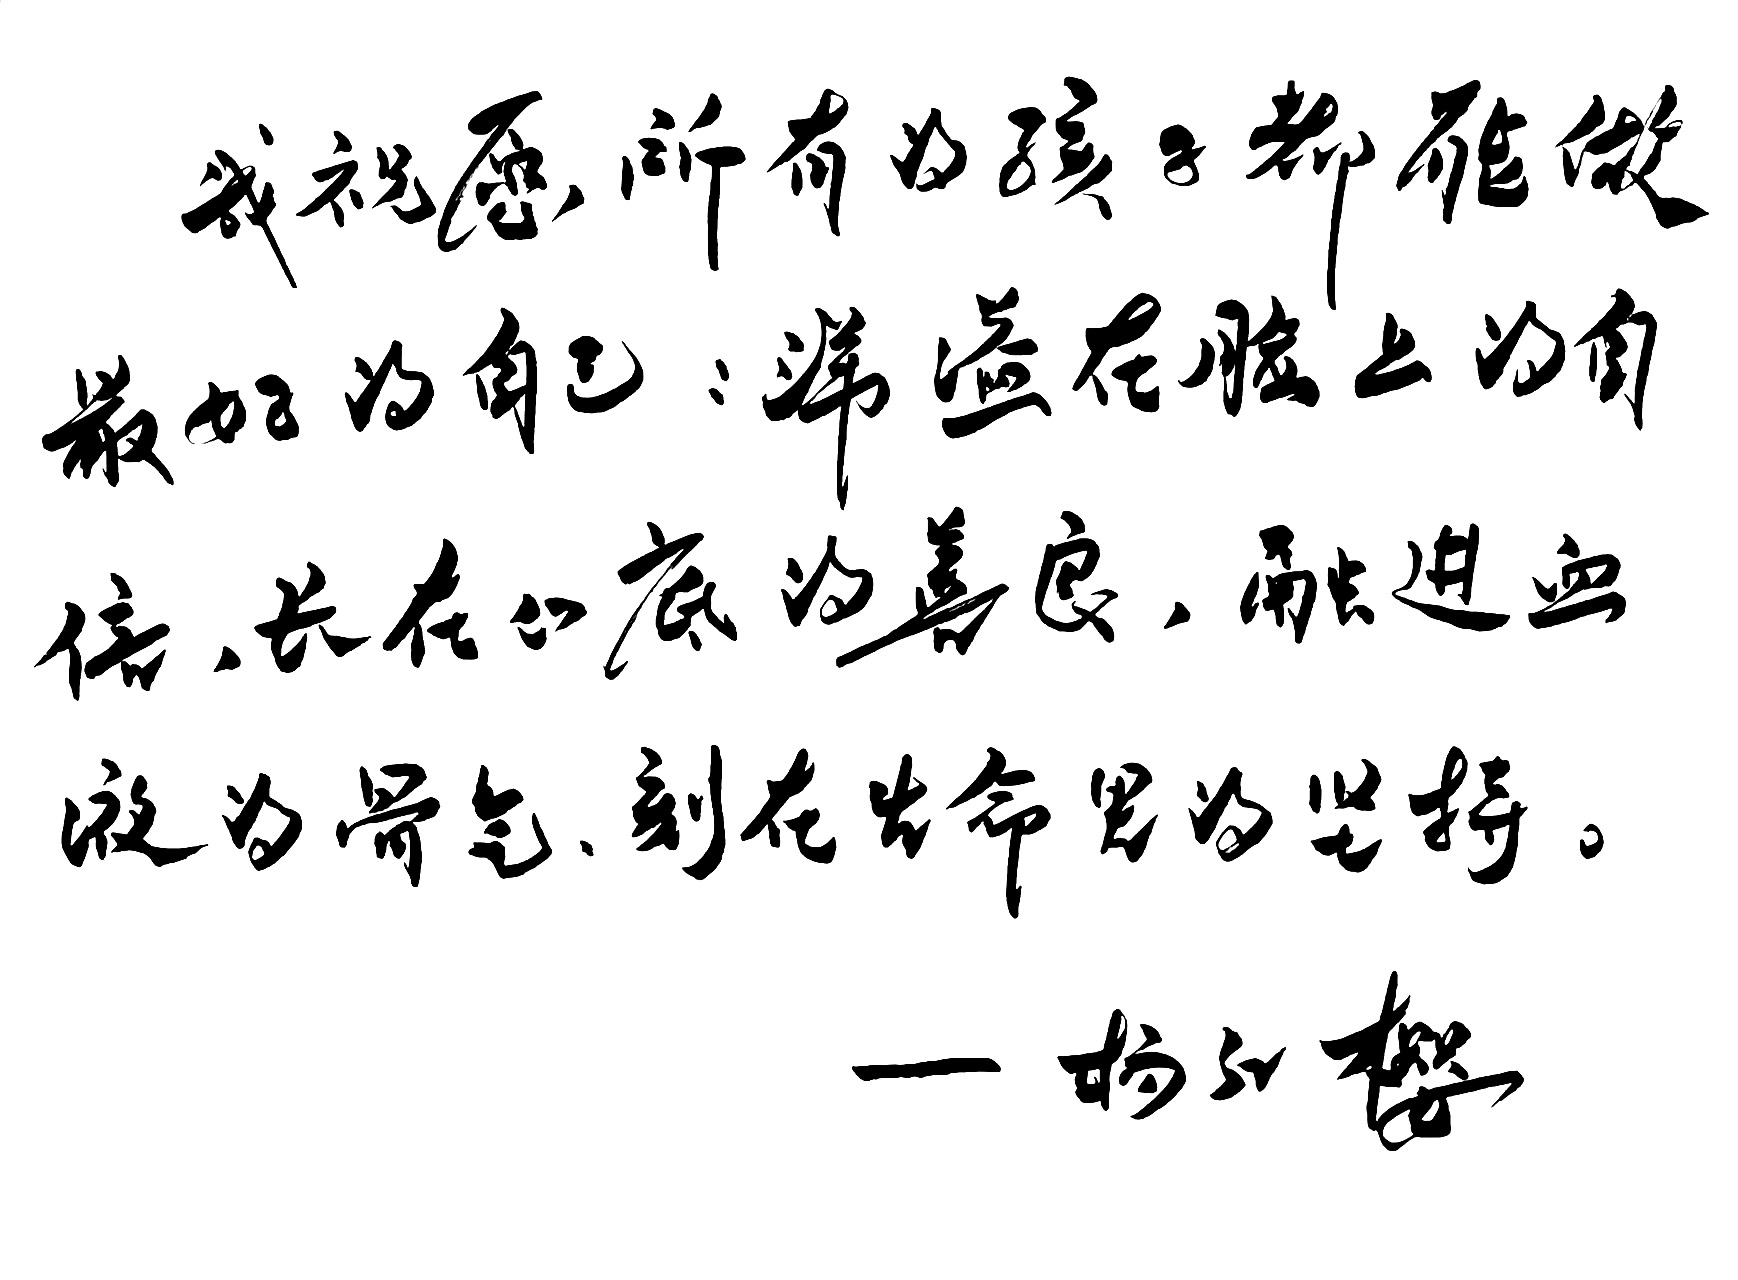 我祝愿所有的孩子都能做
最好的自己：洋溢在脸上的自
信、长在心底的善良，融进血
液的骨气、刻在生命里的坚持。
—杨红樱